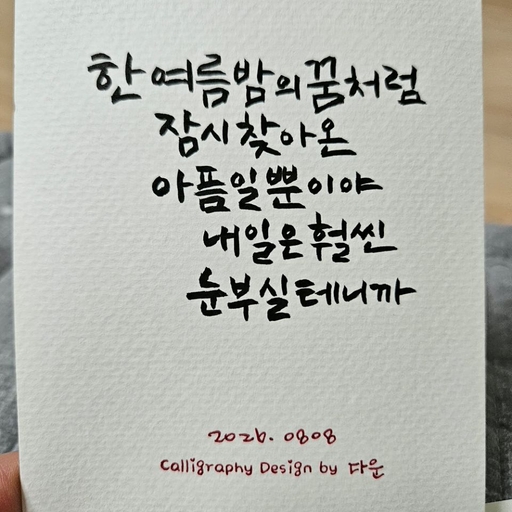 한 여름밤의 꿈처럼
잠시 찾아온
아픔일 뿐이야
내일은 훨씬
눈부실 테니까
2026. 0808
Calligraphy Design by 다운